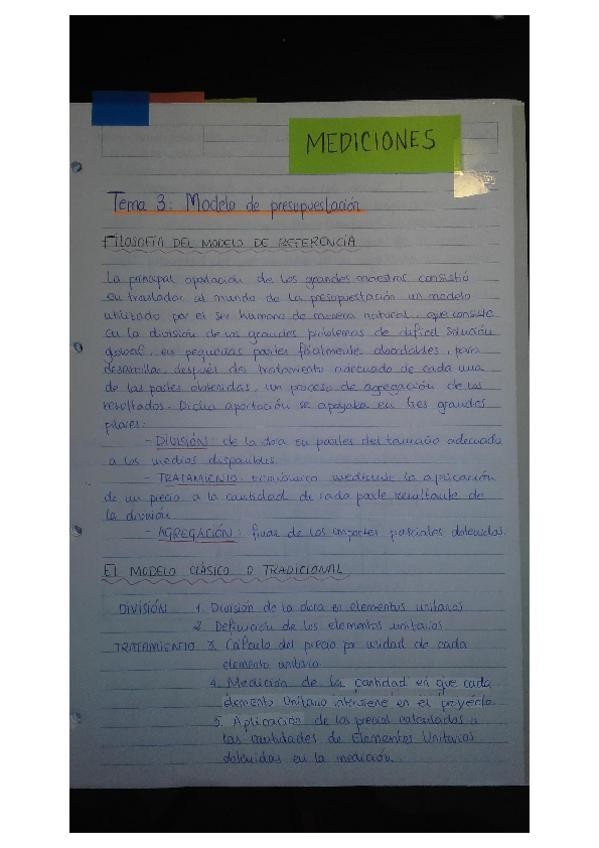 MEDICIONES
Tema 3: Modelo de presupuestación
FILOSOFÍA DEL MODELO DE REFERENCIA
La principal aportación de los grandes maestros consistió
en trasladar al mundo de la presupuestación un modelo
utilizado por el ser humano de manera natural, que consiste
en la división de los grandes problemas de difícil solución
global, en pequeñas partes fácilmente abordables, para
desarrollar, después del tratamiento adecuado de cada una
de las partes obtenidas, un proceso de agregación de los
resultados. Dicha aportación se apoyaba en tres grandes
pilares:
- DIVISIÓN: de la obra en partes del tamaño adecuado
a los medios disponibles.
- TRATAMIENTO: económico mediante la aplicación
de un precio a la cantidad de cada parte resultante de
la división
- AGREGACIÓN: final de los importes parciales obtenidos.
EL MODELO CLÁSICO O TRADICIONAL
DIVISIÓN 1. División de la obra en elementos unitarios
2. Definición de los elementos unitarios
TRATAMIENTO 3. Cálculo del precio por unidad de cada
elemento unitario.
4. Medición de la cantidad en que cada
elemento Unitario interviene en el proyecto.
5. Aplicación de los precios calculados a
las cantidades de Elementos Unitarios
obtenidas en la medición.